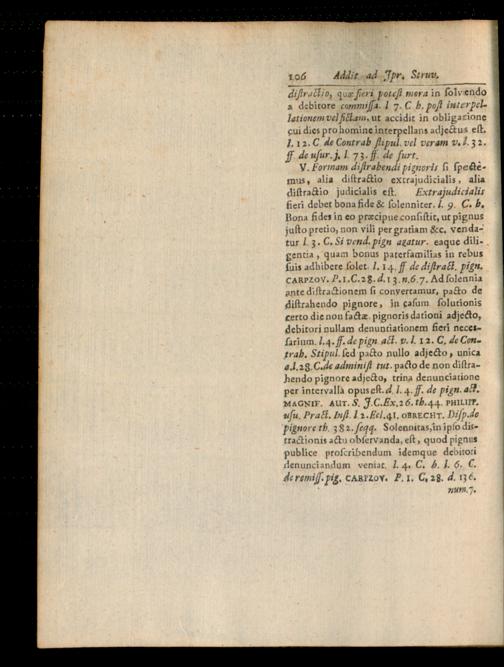 106 Addit. ad Jpr. Struv.
distractio, quæ fieri potest mora in solvendo
a debitore commissa. l 7. C h. post interpel-
lationem vel fictam. ut accidit in obligatione
cui dies pro homine interpellans adjectus est.
l. 12. C de Contrah stipul. vel veram v. l. 32.
ff de usur. j. l. 73. ff. de furt.
V. Formam distrahendi pignoris si spectē-
mus, alia distractio extrajudicialis, alia
distractio judicialis est. Extrajudicialis
fieri debet bona fide & solenniter. l. 9. C. h.
Bona fides in eo præcipue consistit, ut pignus
justo pretio, non vili per gratiam &c. venda-
tur l. 3. C. Si vend. pign agatur. eaque dili-
gentia, quam bonus paterfamilias in rebus
suis adhibere solet. l. 14. ff de distract. pign.
CARPZOV. P. 1. C. 28. d. 13. n. 6. 7. Ad solennia
ante distractionem si convertamur, pacto de
distrahendo pignore, in casum solutionis
certo die non factæ. pignoris dationi adjecto,
debitori nullam denuntiationem fieri neces-
sarium. l. 4. ff. de pign act. v. l. 12. C. de Con-
trah. Stipul. sed pacto nullo adjecto, unica
a. l. 28. C. de administ tut. pacto de non distra-
hendo pignore adjecto, trina denunciatione
per intervalla opus est. d. l. 4. ff. de pign. act.
MAGNIF. AUT. S. J. C. Ex. 26. th. 44. PHILIPP.
usu. Pract. Inst. l. 2. Ecl. 41. OBRECHT. Disp. de
pignore th. 382. seqq. Solennitas, in ipso dis-
tractionis actu observanda, est, quod pignus
publice proscribendum idemque debitori
denunciandum veniat. l. 4. C. h. l. 6. C.
de remiss. pig. CARPZOV. P. 1. C. 28. d. 136.
num. 7.